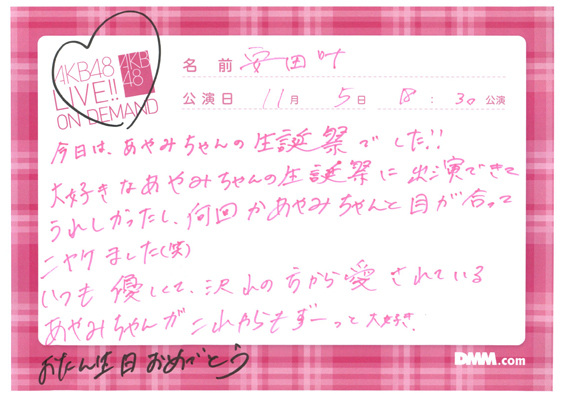 AKB48
LIVE!!
ON DEMAND
AKB
48
名 前 安田叶
公演日 11月 5日 18:30公演
今日は、あやみちゃんの生誕祭でした!!
大好きなあやみちゃんの生誕祭に出演できて
うれしかったし、何回かあやみちゃんと目が合って
ニヤけました(笑)
いつも優しくて、沢山の方から愛されている
あやみちゃんがこれからもずーっと大好き.
おたん生日おめでとう
DMM.com